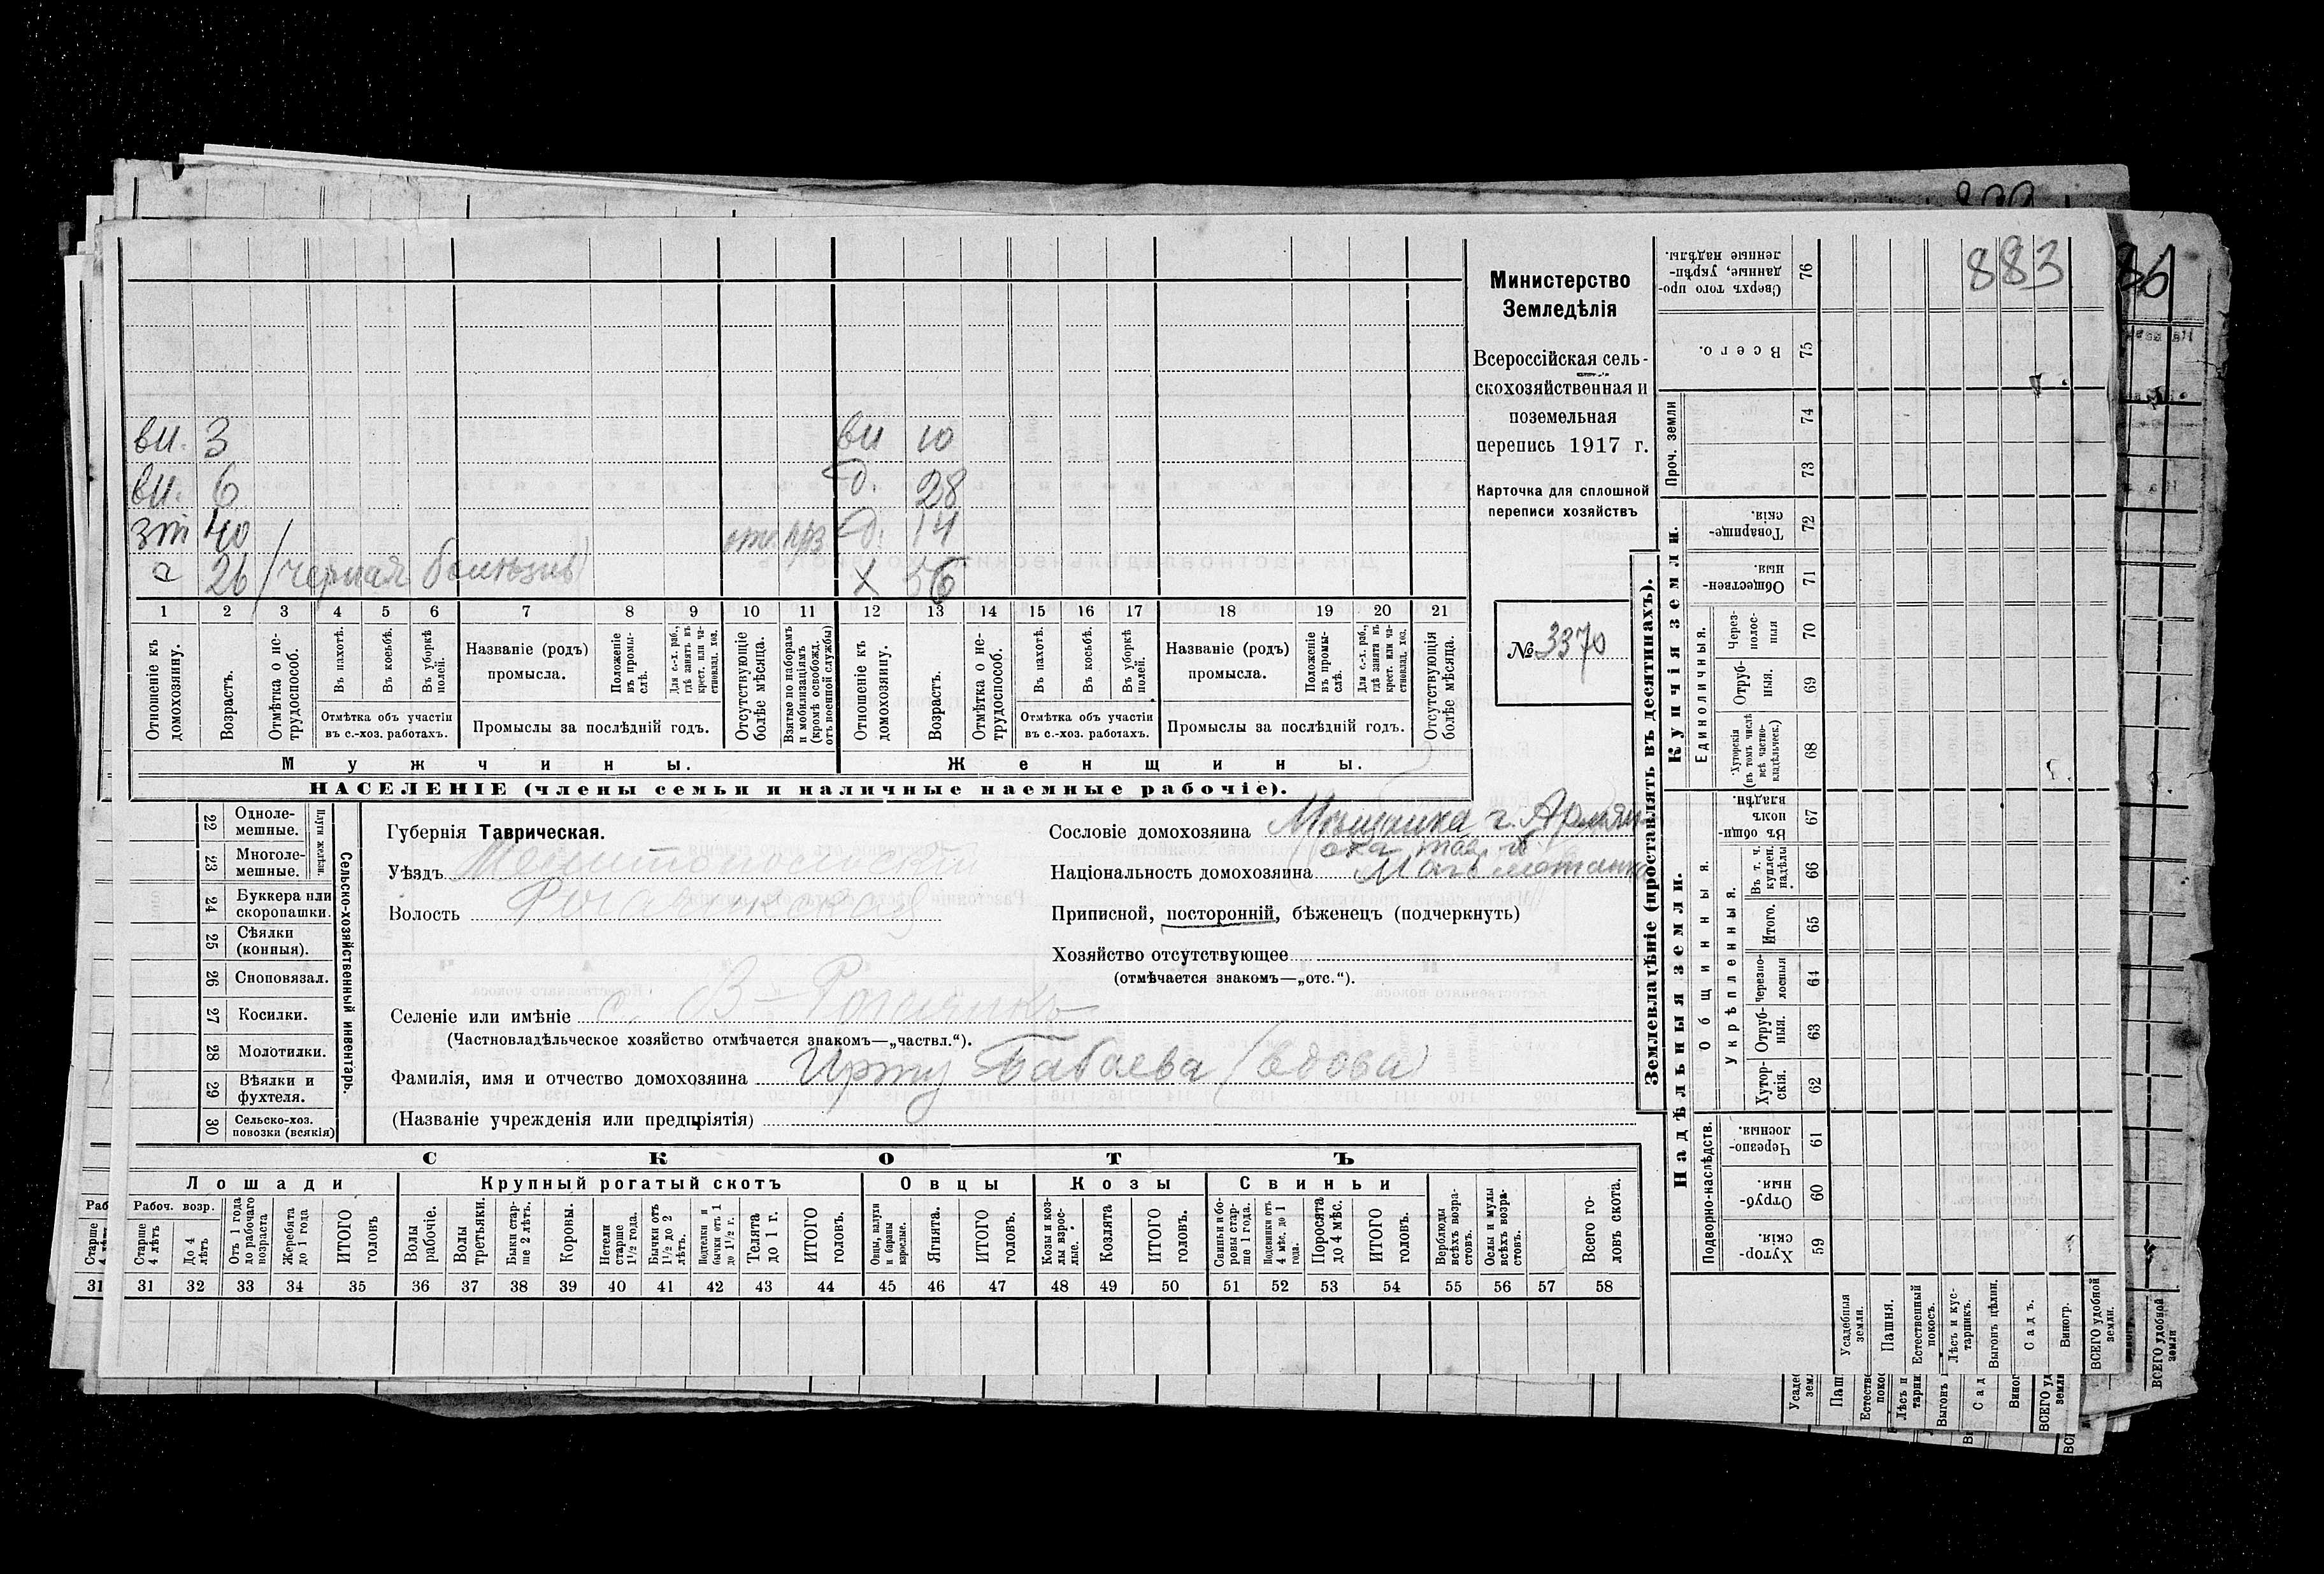 883
вн. 3
вн 10
вн. 6
д. 28
зт 40
д. 14
26 (черная болезнь)
х 56
1 2 3 4 5 6 7 8 9 10 11 12 13 14 15 16 17 18 19 20 21
Отношеніе къ домохозяину.
Возрастъ.
Отмѣтка о нетрудоспособ.
Въ пахотѣ.
Въ косьбѣ.
Въ уборкѣ полей.
Отмѣтка объ участіи
въ с.-хоз. работахъ.
Названіе (родъ)
промысла.
Положеніе въ промыслѣ.
Для с.-х. раб., гдѣ занятъ въ крест. или частновлад. хоз.
Промыслы за послѣдній годъ.
Отсутствующіе болѣе мѣсяца.
Взятые по наборамъ и мобилизаціямъ (кромѣ освобожд. отъ военной службы)
Отношеніе къ домохозяину.
Возрастъ.
Отмѣтка о нетрудоспособ.
Въ пахотѣ.
Въ косьбѣ.
Въ уборкѣ полей.
Отмѣтка объ участіи
въ с.-хоз. работахъ.
Названіе (родъ)
промысла.
Положеніе въ промыслѣ.
Для с.-х. раб., гдѣ занята въ крест. или частновлад. хоз.
Промыслы за послѣдній годъ.
Отсутствующія болѣе мѣсяца.
Мужчины.
Женщины.
НАСЕЛЕНІЕ (члены семьи и наличные наемные рабочіе).
Министерство
Земледѣлія
Всероссійская сель-
скохозяйственная и
поземельная
перепись 1917 г.
Карточка для сплошной
переписи хозяйствъ
№ 3370
22 Однолемешные.
23 Многолемешные.
Плуги желѣзн.
24 Буккера или скоропашки.
25 Сѣялки (конныя).
26 Сноповязал.
27 Косилки.
28 Молотилки.
29 Вѣялки и фухтеля.
30 Сельско-хоз. повозки (всякія)
Сельско-хозяйственный инвентарь.
Губернія Таврическая.
Уѣздъ Мелитопольскій
Волость Рогачикская
Селеніе или имѣніе с. В-Рогачикъ
(Частновладѣльческое хозяйство отмѣчается знакомъ—„частвл.“).
Фамилія, имя и отчество домохозяина Бабаева (вдова)
(Названіе учрежденія или предпріятія)
Сословіе домохозяина Мѣщанка г. Армян
Національность домохозяина
Приписной, посторонній, бѣженецъ (подчеркнуть)
Хозяйство отсутствующее
(отмѣчается знакомъ—„отс.“).
СКОТЪ
Лошади
Крупный рогатый скотъ
Овцы
Козы
Свиньи
Рабоч. возр.
Старше 4 лѣтъ
До 4 лѣтъ
Отъ 1 года до рабочаго возраста
Жеребята до 1 года
ИТОГО головъ
Волы рабочіе.
Волы третьяки.
Быки старше 2 лѣтъ.
Коровы.
Нетели старше 1½ года.
Бычки отъ 1½ до 2 лѣтъ.
Подтелки и бычки отъ 1 до 1½ г.
Телята до 1 г.
ИТОГО головъ.
Овцы, валухи и бараны взрослые.
Ягнята.
ИТОГО головъ.
Козы и козлы взрослые.
Козлята
ИТОГО головъ.
Свиньи и боровы старше 1 года.
Подсвинки отъ 4 мѣс. до 1 года.
Поросята до 4 мѣс.
ИТОГО головъ.
Верблюды всѣхъ возрастовъ.
Ослы и мулы всѣхъ возрастовъ.
Всего головъ скота.
31 32 33 34 35 36 37 38 39 40 41 42 43 44 45 46 47 48 49 50 51 52 53 54 55 56 57 58
Землевладѣніе (проставлять въ десятинахъ).
Сверхъ того проданные, укрѣпленные надѣлы. 76
Всего. 75
Проч. земли
74
73
Купчія земли.
Товарищескія. 72
Общественныя. 71
Единоличныя.
Черезполосныя 70
Отрубныя. 69
Хуторскія (въ томъ числѣ всѣ частновладѣльческ.) 68
Надѣльныя земли.
Общинныя.
Въ общинномъ владѣн. 67
Укрѣпленныя.
Въ т. ч. куплен. надѣлы 66
Итого. 65
Черезполосныя 64
Отрубныя. 63
Хуторскія. 62
Подворно-наслѣдств.
Черезполосныя. 61
Отрубныя. 60
Хуторскія. 59
Усадебныя земли.
Пашня.
Естественный покосъ.
Лѣсъ и кустарникъ.
Выгонъ цѣлин.
Садъ.
Виногр.
ВСЕГО удобной земли.